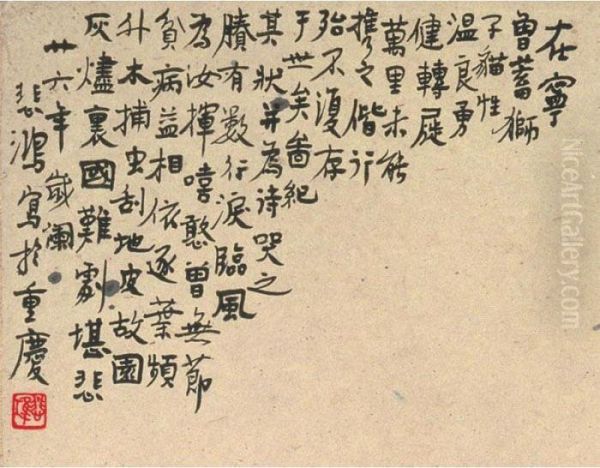 在寧
曾蓄獅
子貓性
溫良勇
健轉展
萬里未能
攜之偕行
殆不復存
于世矣啚紀
其狀并為詩哭之
賸有數行淚臨風
為汝揮嘻憨曾無節
貧病益相依逐葉頻
升木捕虫刮地皮故園
灰燼裏國難劇堪悲
廿六年歲闌
悲鴻寫於重慶
NiceArtGallery.com